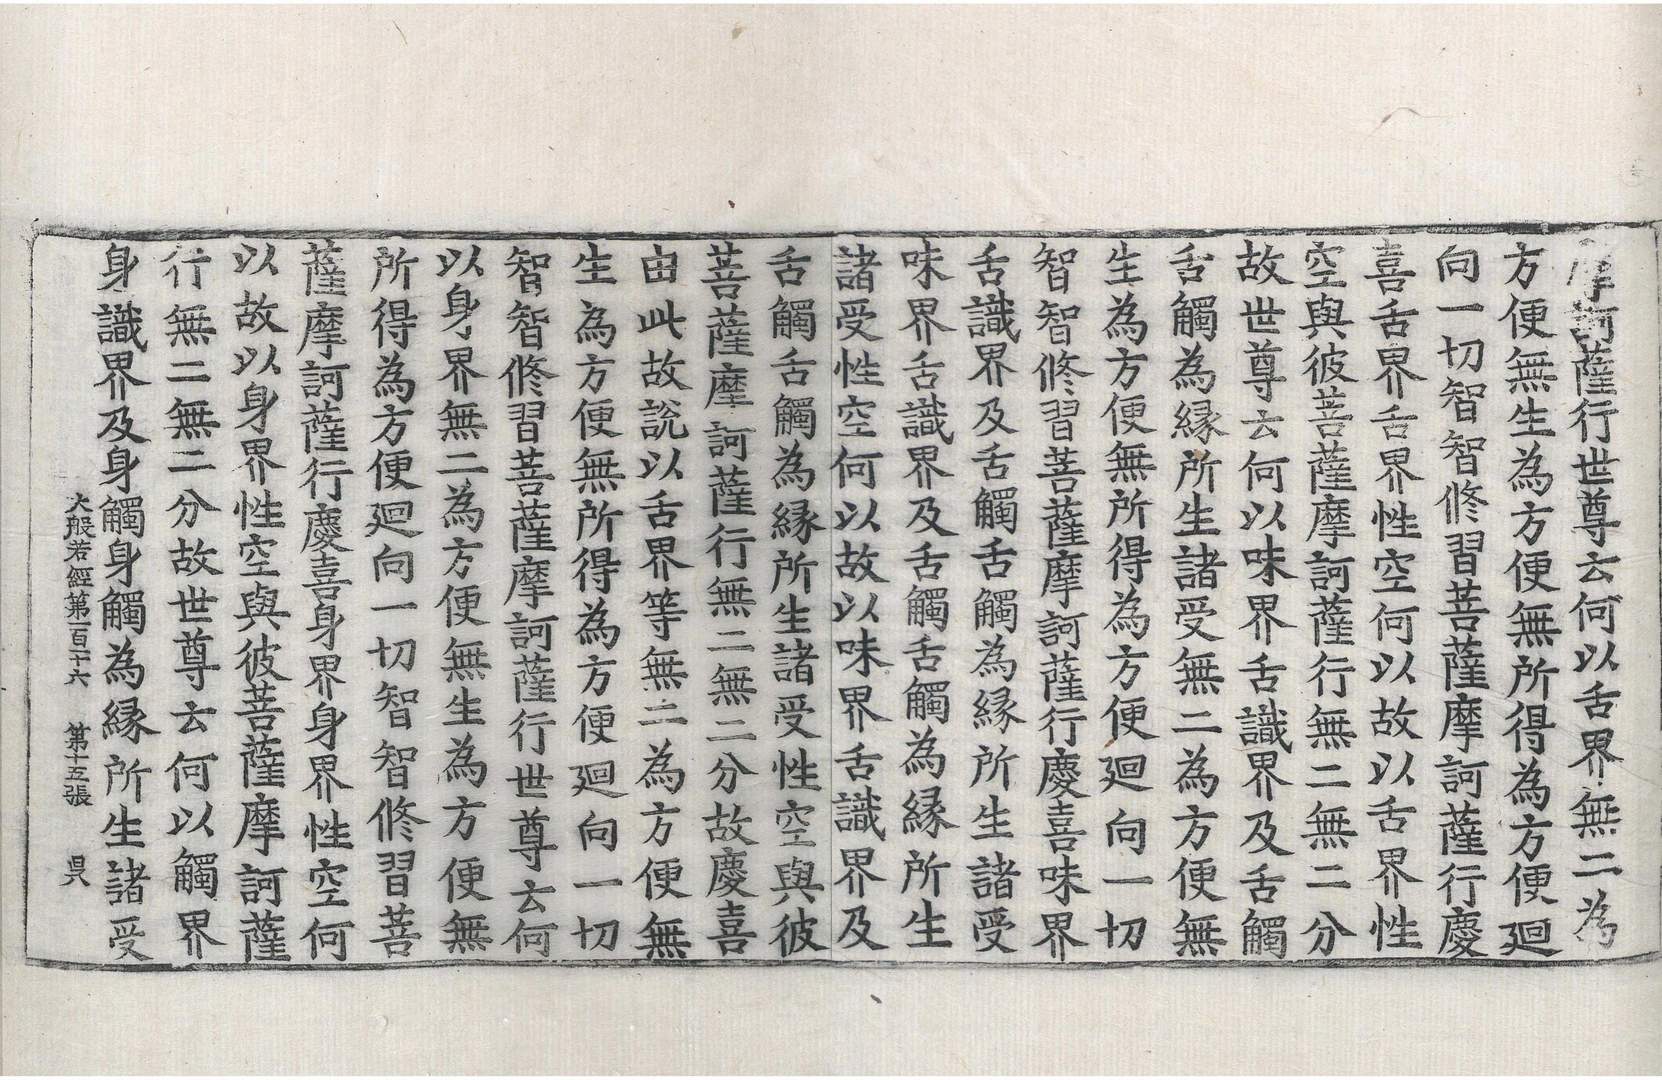 摩訶薩行世尊云何以舌界無二為
方便無生為方便無所得為方便廻
向一切智智修習菩薩摩訶薩行慶
喜舌界舌界性空何以故以舌界性
空與彼菩薩摩訶薩行無二無二分
故世尊云何以味界舌識界及舌觸
舌觸為縁所生諸受無二為方便無
生為方便無所得為方便廻向一切
智智修習菩薩摩訶薩行慶喜味界
舌識界及舌觸舌觸為縁所生諸受
味界舌識界及舌觸舌觸為縁所生
諸受性空何以故以味界舌識界及
舌觸舌觸為縁所生諸受性空與彼
菩薩摩訶薩行無二無二分故慶喜
由此故說以舌界等無二為方便無
生為方便無所得為方便廻向一切
智智修習菩薩摩訶薩行世尊云何
以身界無二為方便無生為方便無
所得為方便廻向一切智智修習菩
薩摩訶薩行慶喜身界身界性空何
以故以身界性空與彼菩薩摩訶薩
行無二無二分故世尊云何以觸界
身識界及身觸身觸為縁所生諸受
大般若經第一百十六 第十五張 昃